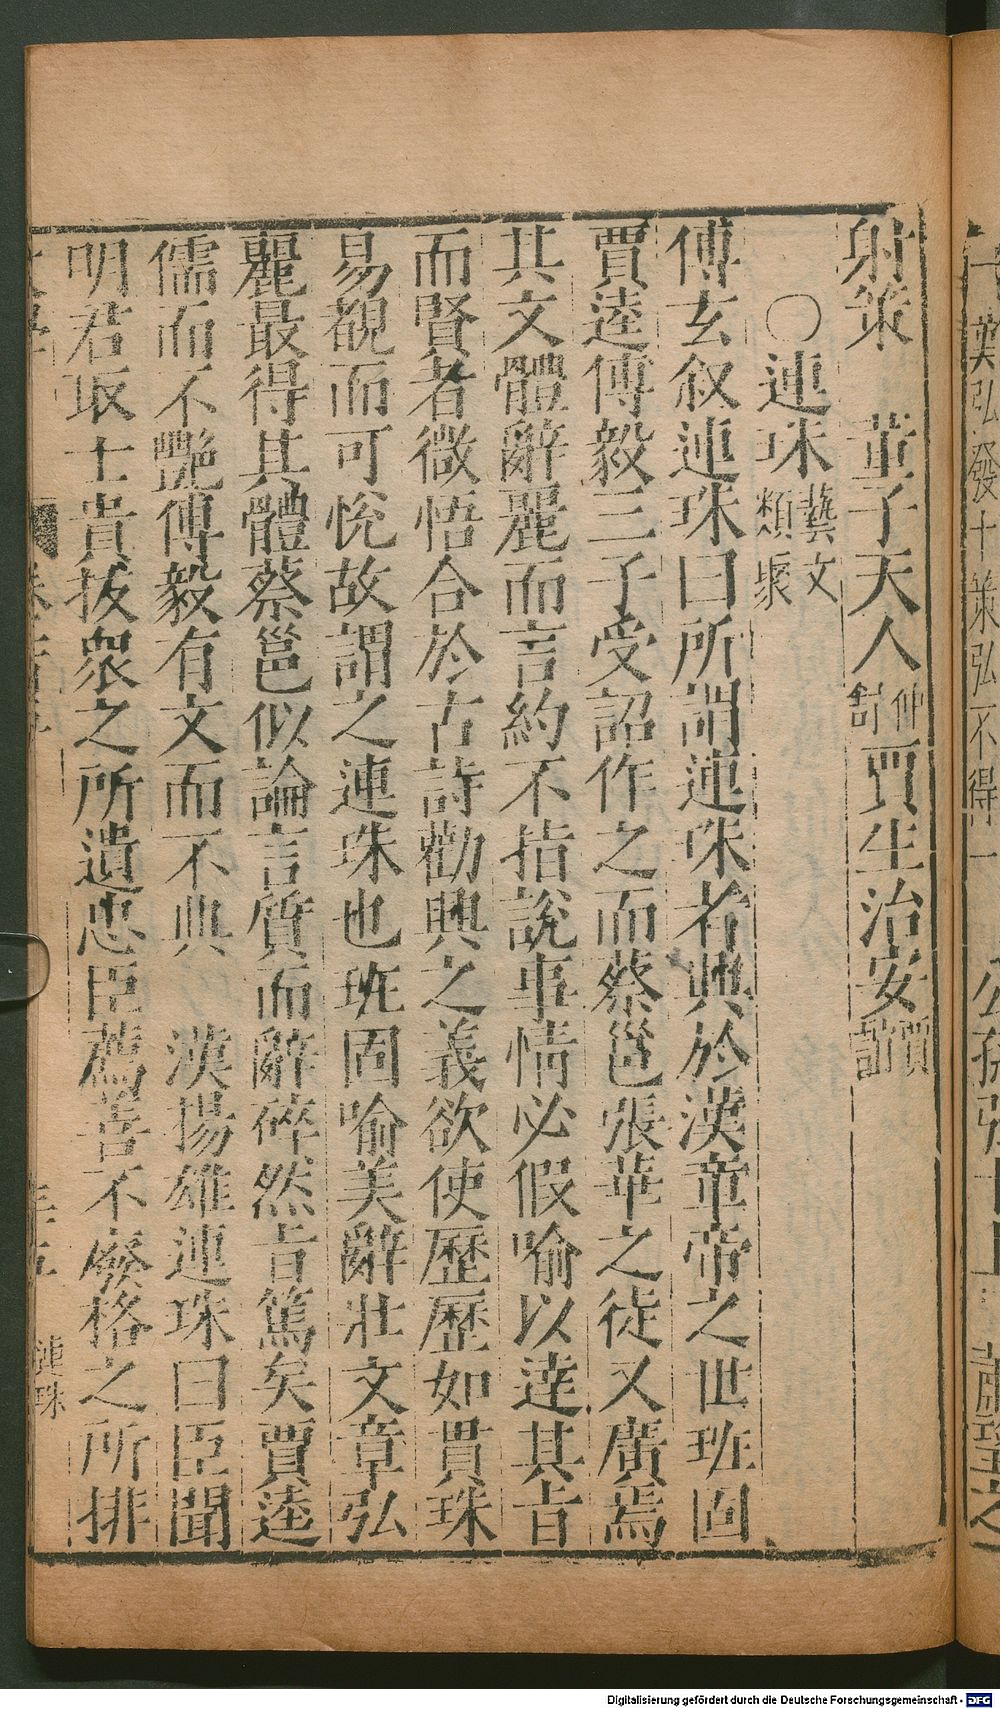 射策　董子天人仲舒賈生治安賈誼
○連珠藝文類聚
傅玄叙連珠曰所謂連珠者興於漢章帝之世班固
賈逵傅毅三子受詔作之而蔡邕張華之徒又廣焉
其文體辭麗而言約不指說事情必假喻以達其旨
而賢者微悟合於古詩勸興之義欲使歷歷如貫珠
易覩而可悅故謂之連珠也班固喻美辭壯文章弘
麗最得其體蔡邕似論言質而辭碎然旨篤矣賈逵
儒而不艷傅毅有文而不典　漢揚雄連珠曰臣聞
明君取士貴拔衆之所遺忠臣薦善不廢格之所排
連珠
Digitalisierung gefördert durch die Deutsche Forschungsgemeinschaft - DFG